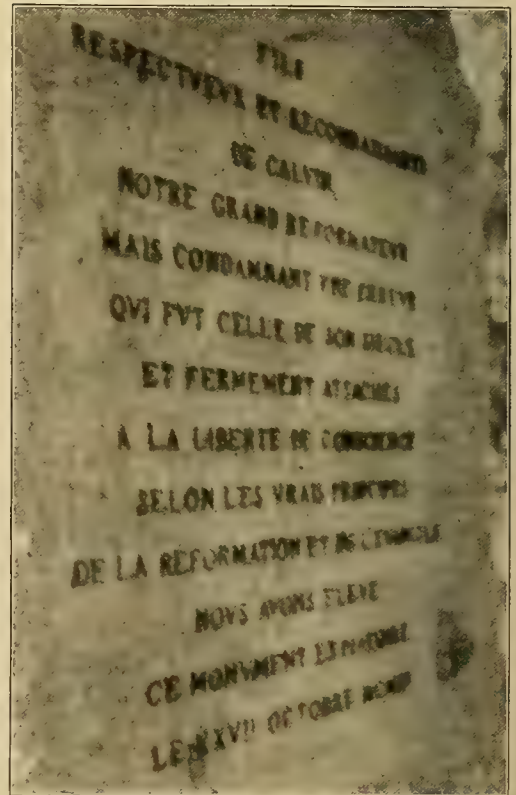 FILS
RESPECTVEVX ET RECONNAISSANTS
DE CALVIN
NOTRE GRAND REFORMATEVR
MAIS CONDAMNANT VNE ERREVR
QVI FVT CELLE DE SON SIECLE
ET FERMEMENT ATTACHES
A LA LIBERTE DE CONSCIENCE
SELON LES VRAIS PRINCIPES
DE LA REFORMATION ET DE L'EVANGILE
NOVS AVONS ELEVE
CE MONVMENT EXPIATOIRE
LE XXVII OCTOBRE MCMIII